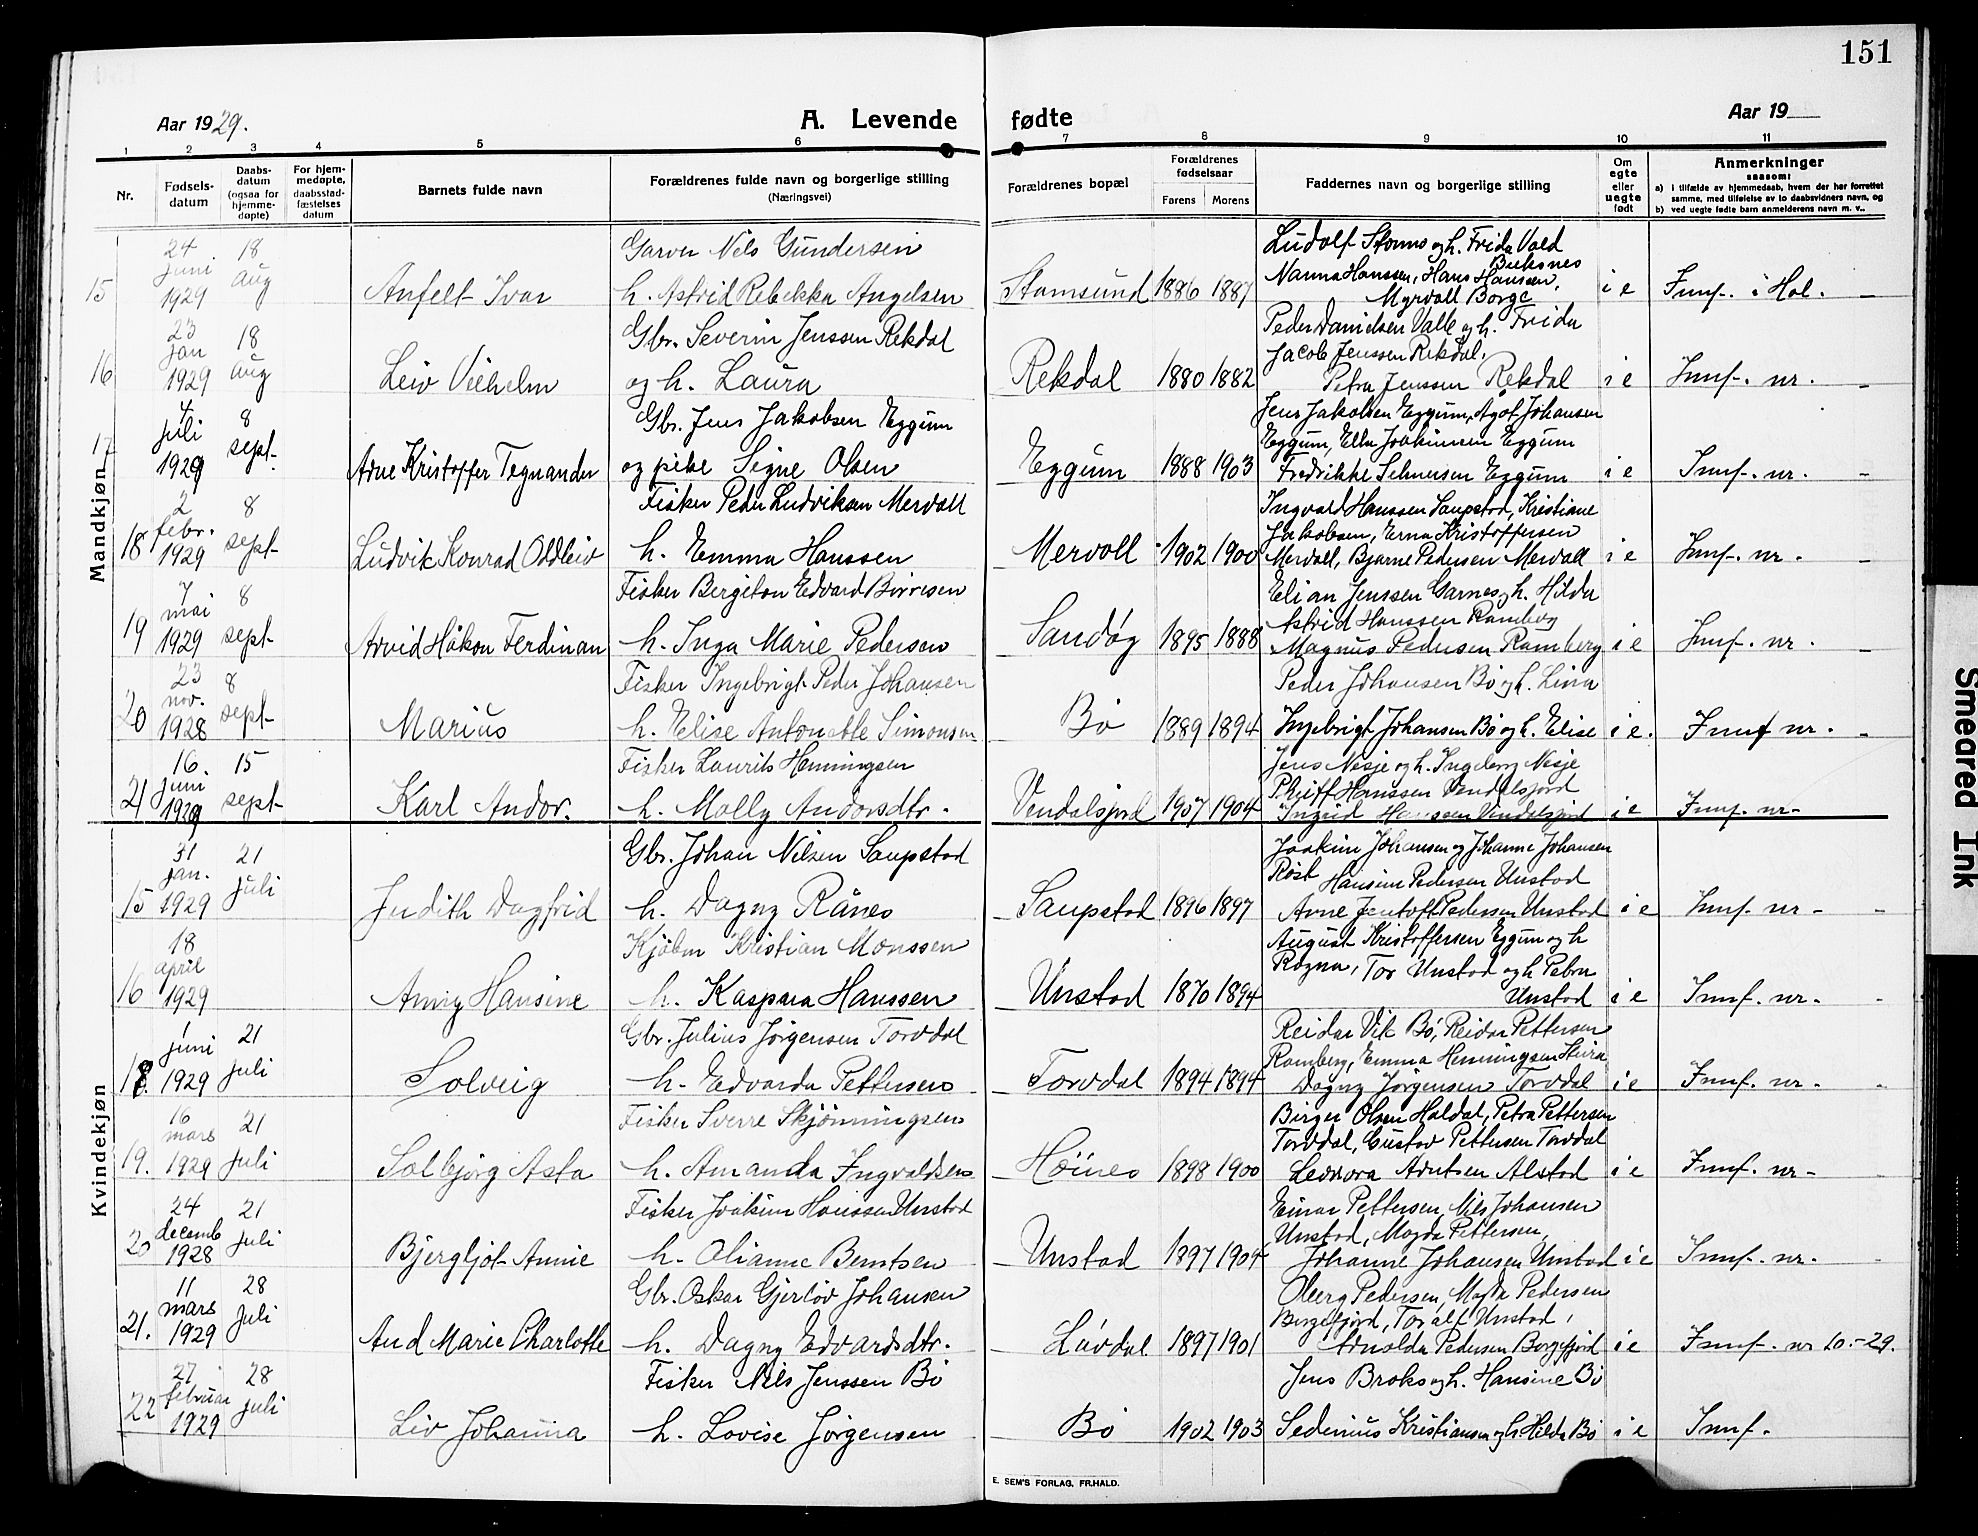 151
Aar 1929.
A. Levende fødte
Aar 19
1 2 3 4 5 6 7 8 9 10 11
Nr.
Fødsels-
datum
Daabs-
datum
(ogsaa for
hjemme-
døpte)
For hjem-
medøpte,
daabsstad-
fæstelses
datum
Barnets fulde navn
Forældrenes fulde navn og borgerlige stilling
(Næringsvei)
Forældrenes bopæl
Forældrenes
fødselsaar
Farens Morens
Faddernes navn og borgerlige stilling
Om
egte
eller
uegte
født
Anmerkninger
saasom:
a) i tilfælde av hjemmedaab, hvem der har forrettet
samme, med tilføielse av to daabsvidners navn, og
b) ved uegte fødte barn anmelderens navn m. v..
Mandkjøn
15
24 juni 1929
18 aug
Anfelt Ivar
Garver Nils Gundersen
h. Astrid Rebekka Angelsen
Stamsund 1886 1887
Ludolf Storms og h. Frida Vold
Buksnes
Nanna Hanssen, Hans Hansen,
Myrvoll Borge
i e
Innf. i Hol. -
16
23 jan 1929
18 aug
Leiv Vilhelm
Gbr. Severin Jenssen Rekdal
og h. Laura
Rekdal 1880 1882
Peder Danielsen Valle og h. Frida
Jacob Jenssen Rekdal,
Petra Jenssen Rekdal
i e
Innf. nr. -
17
juli 1929
8 sept.
Arne Kristoffer Tegnander
Gbr. Jens Jakobsen Eggum
og pike Signe Olsen
Eggum 1888 1903
Jens Jakobsen Eggum, Agot Johansen
Eggum, Ella Joakimsen Eggum
Fredrikke Selmersen Eggum
i e
Innf. nr. -
18
2 febr. 1929
8 sept.
Ludvik Konrad Oddleiv
Fisker Peder Ludviksen Mervoll
h. Emma Hanssen
Mervoll 1902 1900
Ingvald Hanssen Saupstad, Kristiane
Jakobsen, Erna Kristoffersen
Mervoll, Bjarne Pedersen Mervoll
i e
Innf. nr. -
19
7 mai 1929
8 sept.
Arvid Håkon Ferdinan
Fisker Bergiton Edvard Børresen
h. Inga Marie Pedersen
Sandøy 1895 1888
Elian Jenssen Garnes og h. Hilda
Astrid Hanssen Ramberg
Magnus Pedersen Ramberg
i e
Innf. nr. -
20
23 nov. 1928
8 sept.
Marius
Fisker Ingebrigt Peder Johansen
h. Elise Antonette Simonsen
Bø 1889 1894
Peder Johansen Bø og h. Lina
Ingebrigt Johansen Bø og h. Elise
i e.
Innf nr. -
21
16. juni 1929
15 sept.
Karl Andor.
Fisker Laurits Henningsen
h. Molly Andorsdtr.
Vendalsjord 1907 1904
Jens Nesje og h. Ingeborg Nesje
Hanssen Vendalsjord
Ingrid Hanssen Vendalsjord
i e
Innf. nr-
Kvindekjøn
15
31 jan. 1929
21 juli
Judith Dagfrid
Gbr. Johan Nilsen Saupstad
h. Dagny Rånes
Saupstad 1896 1897
Joakim Johansen og Johanne Johansen
Røst Hansine Pedersen Unstad
Arne Jentoft Pedersen Unstad
i e
Innf. nr -
16
18 april 1929
Anny Hansine
Kjøbm Kristian Monssen
h. Kaspara Hanssen
Unstad 1870 1894
August Kristoffersen Eggum og h
Ragna, Tor Unstad og h Petra
Unstad
i e
Innf. nr. -
18.
1 juni 1929
21 juli
Solveig
Gbr. Julius Jørgensen Torvdal
h. Edvarda Pettersen
Torvdal 1894 1894
Reidar Vik Bø, Reidar Pettersen
Ramberg, Emma Henningsen
Dagny Jørgensen Torvdal
i e
Innf. nr. -
19.
16 mars 1929
21 juli
Solbjørg Asta
Fisker Sverre Skjønningsen
h. Amanda Ingvaldsen
Høines 1898 1900
Birger Olsen Haldal, Petra Pettersen
Torvdal, Gustav Pettersen Torvdal
Leonora Arntsen Alstad
i e
Innf. nr -
20
24 decemb 1928
21 juli
Bjergljot Annie
Fisker Joakim Hanssen Unstad
h. Olianne Berntsen
Unstad 1897 1904
Einar Pettersen, Nils Johansen
Unstad, Magda Pettersen,
Johanne Johansen Unstad
i e
Innf. nr. -
21.
11 mars 1929
28 juli
Aud Marie Charlotte
Gbr. Oskar Gjerløv Johansen
h. Dagny Edvardsdtr.
Løvdal 1897 1901
Oberg Pedersen, Magda Pedersen
Borgefjord, Toralf Unstad,
Arnolda Pedersen Borgefjord
i e
Innf. nr 10.-29.
22
27 februar 1929
28 juli
Liv Johanna
Fisker Nils Jenssen Bø
h. Lovise Jørgensen
Bø 1902 1903
Jens Broks og h. Hansine Bø
Sedenius Kristiansen og h Hilda Bø
i e
Innf.
E. SEM'S FORLAG, FR.HALD.
Smeared Ink